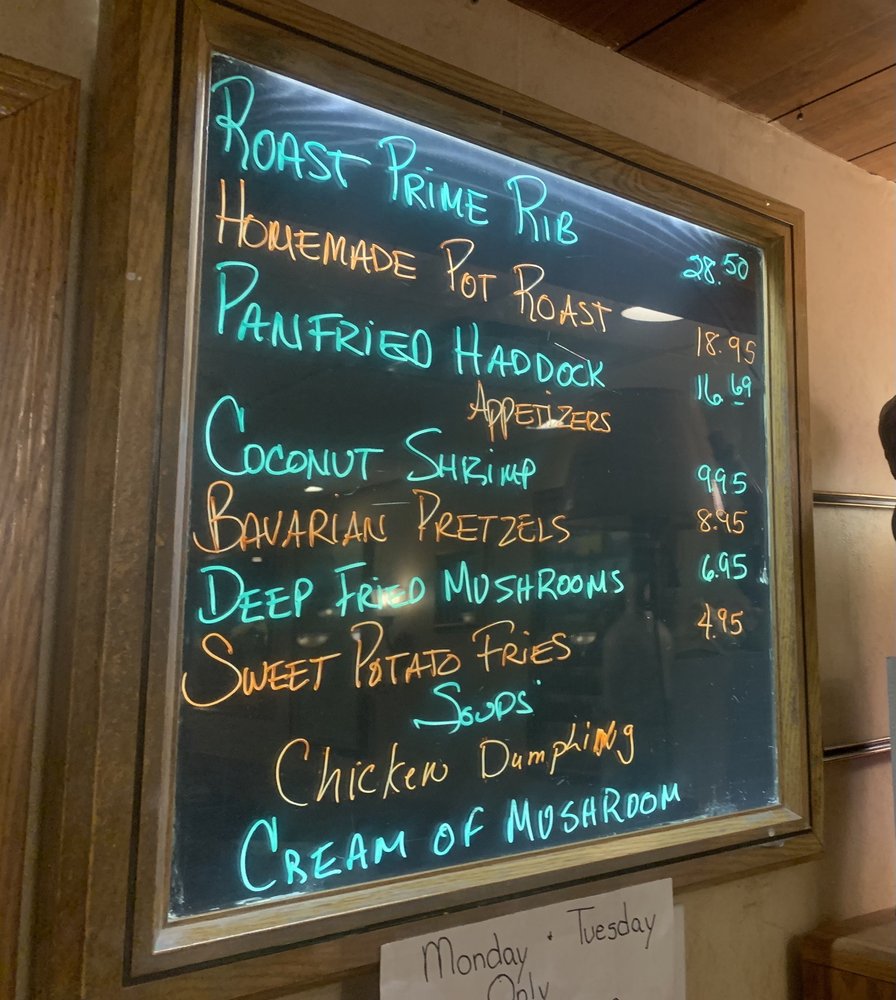 ROAST PRIME RIB 28.50
HOMEMADE POT ROAST 18.95
PANFRIED HADDOCK 16.69
APPETIZERS
COCONUT SHRIMP 9.95
BAVARIAN PRETZELS 8.95
DEEP FRIED MUSHROOMS 6.95
SWEET POTATO FRIES 4.95
SOUPS
Chicken Dumpling
CREAM OF MUSHROOM
Monday • Tuesday
Only